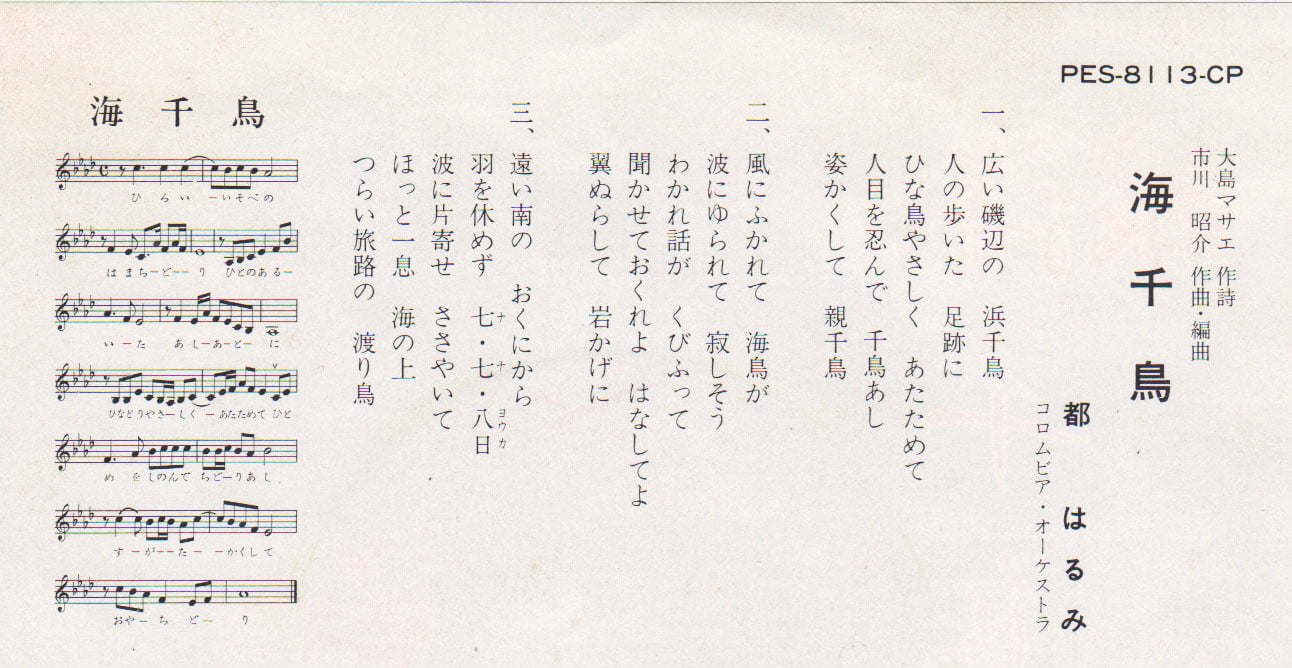 PES-8113-CP
大島マサエ 作詩
市川 昭介 作曲・編曲
海千鳥
都はるみ
コロムビア・オーケストラ
一、広い磯辺の 浜千鳥
人の歩いた 足跡に
ひな鳥やさしく あたためて
人目を忍んで 千鳥あし
姿かくして 親千鳥
二、風にふかれて 海鳥が
波にゆられて 寂しそう
わかれ話が くびふって
聞かせておくれよ はなしてよ
翼ぬらして 岩かげに
三、遠い南の おくにから
羽を休めず 七・七・八日
ナ ナ ヨウカ
波に片寄せ ささやいて
ほっと一息 海の上
つらい旅路の 渡り鳥
海千鳥
ひろいーいそべの
はまちーどーーり ひとのあるー
いーた あしーあーとーに
ひなどりやさーしく ーあたためて ひと
め をしのんで ちどーりあし
すーがーーたー ーかくして
おやーち どー り